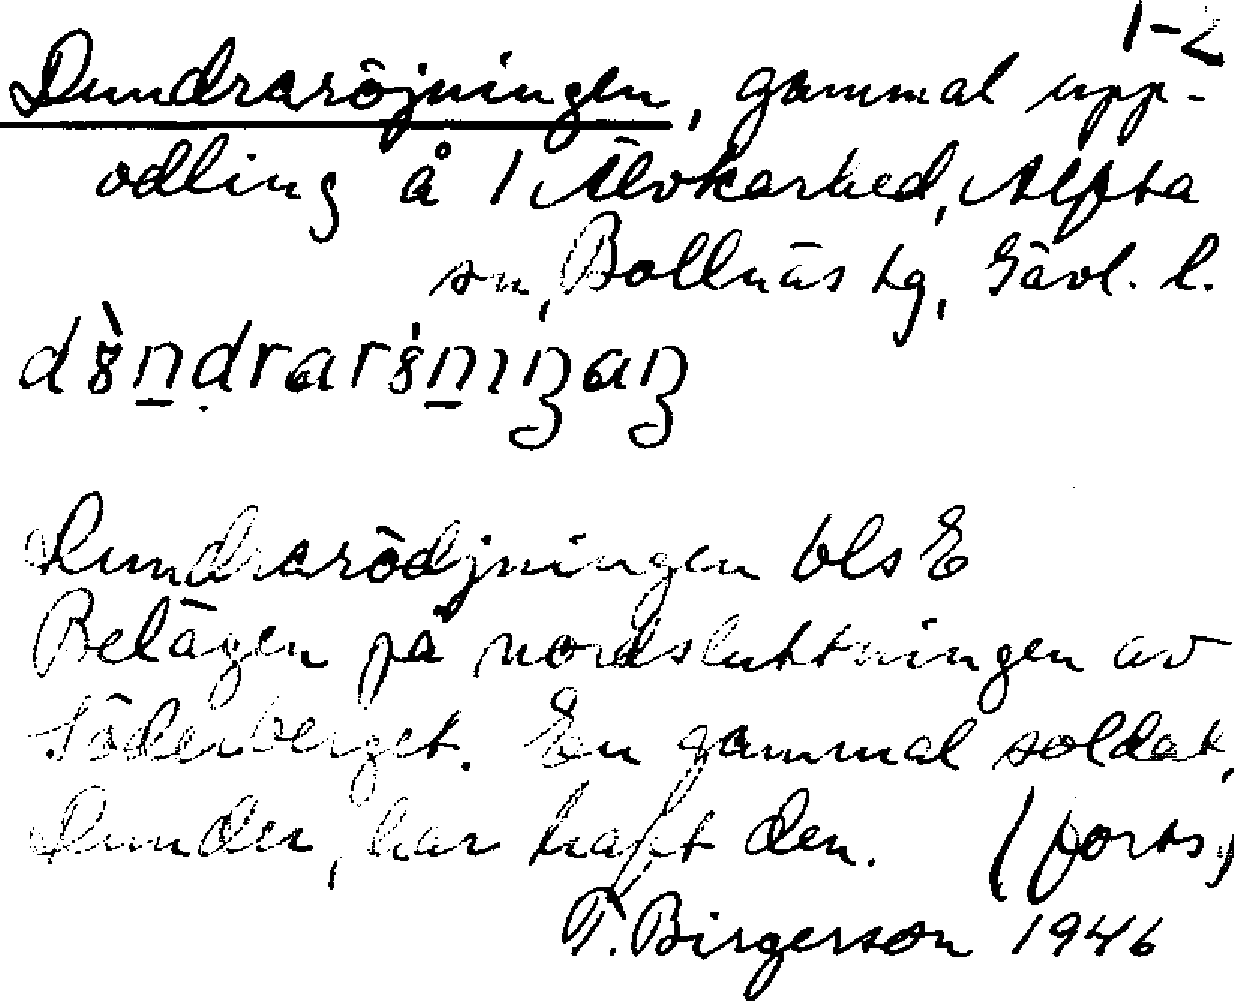 1-2
Dundraröjningen, gammal upp-
odling å 1 Älvkarhed, Alfta
sn, Bollnäs tg, Gävl. l.
Dundrarödjningen bls E
Belägen på nordsluttningen av
Söderberget. En gammal soldat,
Dunder, har haft den. (forts.)
T. Birgerson 1946